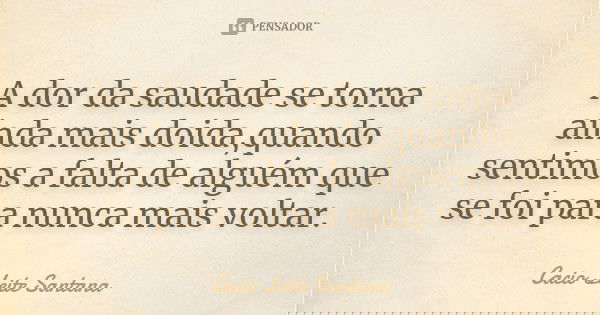 PENSADOR
A dor da saudade se torna
ainda mais doida,quando
sentimos a falta de alguém que
se foi para nunca mais voltar.
Cacio Leite Santana